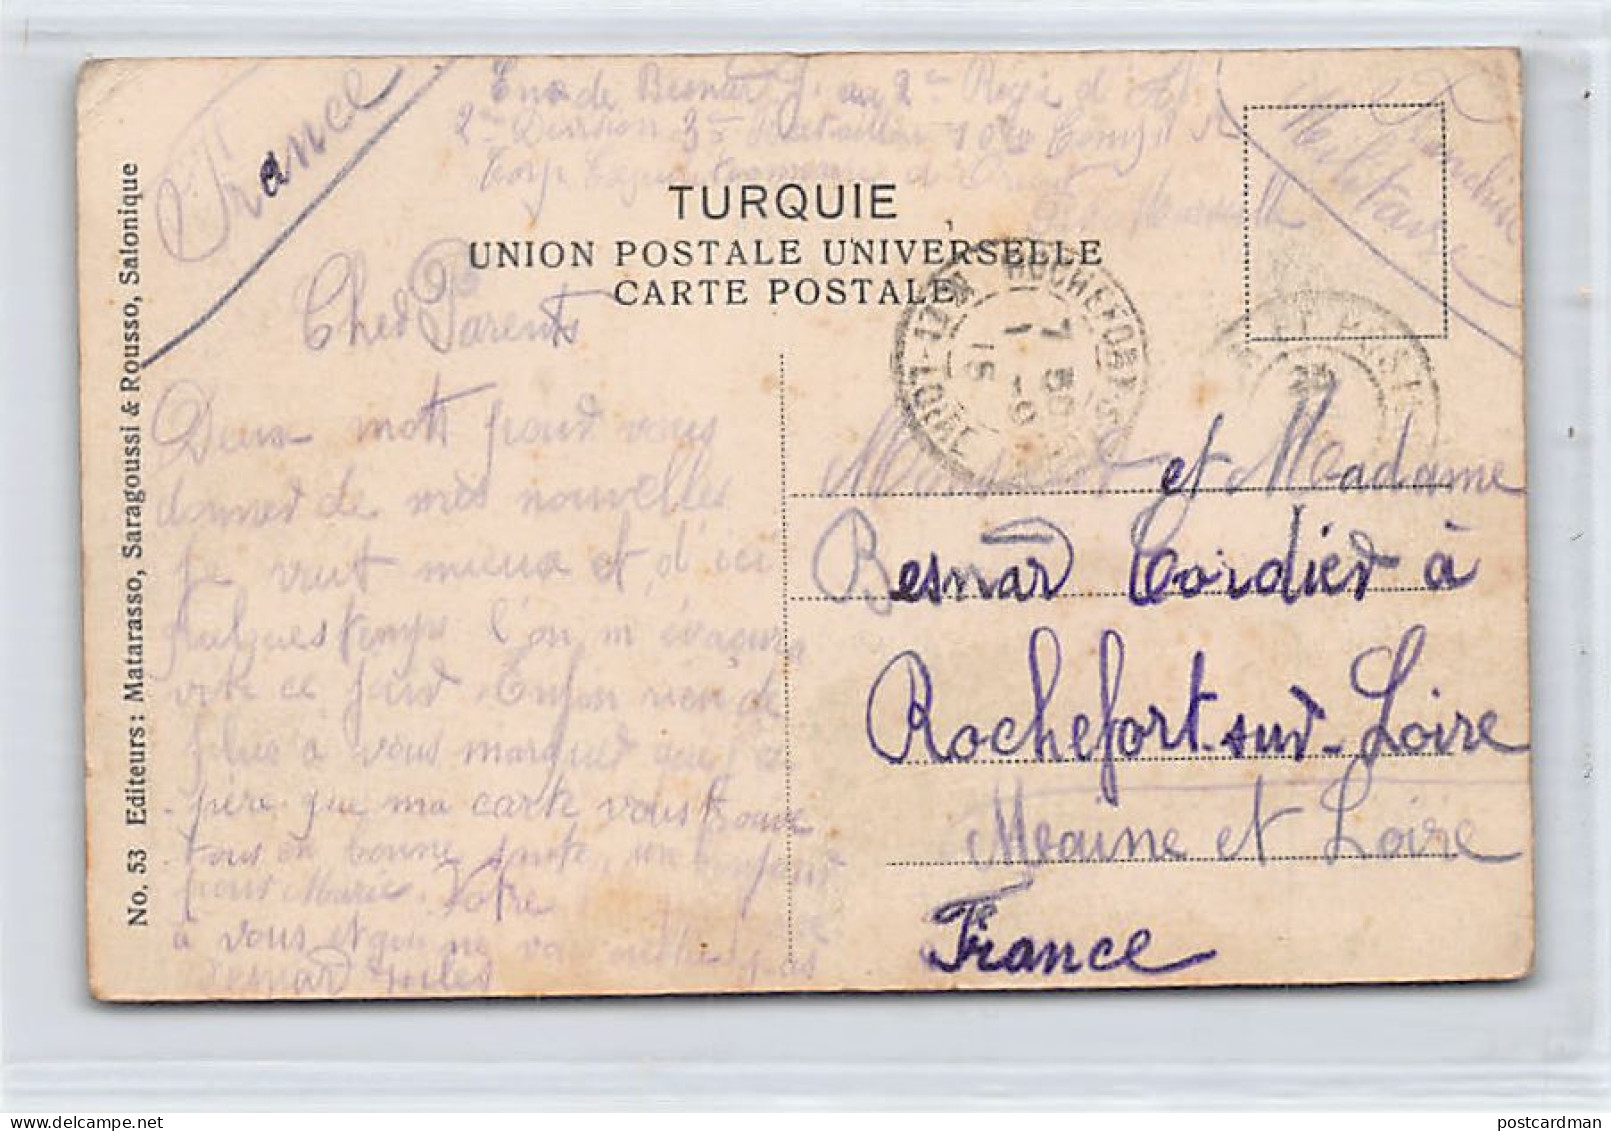 France
Besnard J. au 2e Régi d'A
2me Division 3me Bataillon 10e Comp
Corp Expéditionnaire d'Orient
Marseille
Franchise
Militaire
TURQUIE
UNION POSTALE UNIVERSELLE
CARTE POSTALE
ROCHEFORT-S
MNE-ET-LOIRE
7 50
1 -9
15
ET POSTES
Cher Parents
Deux mots pour vous
donner de mes nouvelles
je vait mieux et d'ici
quelques temps l'on m'évacura
vers ce jour. Enfin rien de
plus à vous marquer que j'es
père que ma carte vous trouve
tous en bonne santé, un bonjour
pour Marie. Votre
à vous et qui ne vous oublie pas
Besnard Jules
Monsieur et Madame
Besnard Cordier à
Rochefort-sur-Loire
Maine et Loire
France
No. 53 Editeurs: Matarasso, Saragoussi & Rousso, Salonique
postcardman